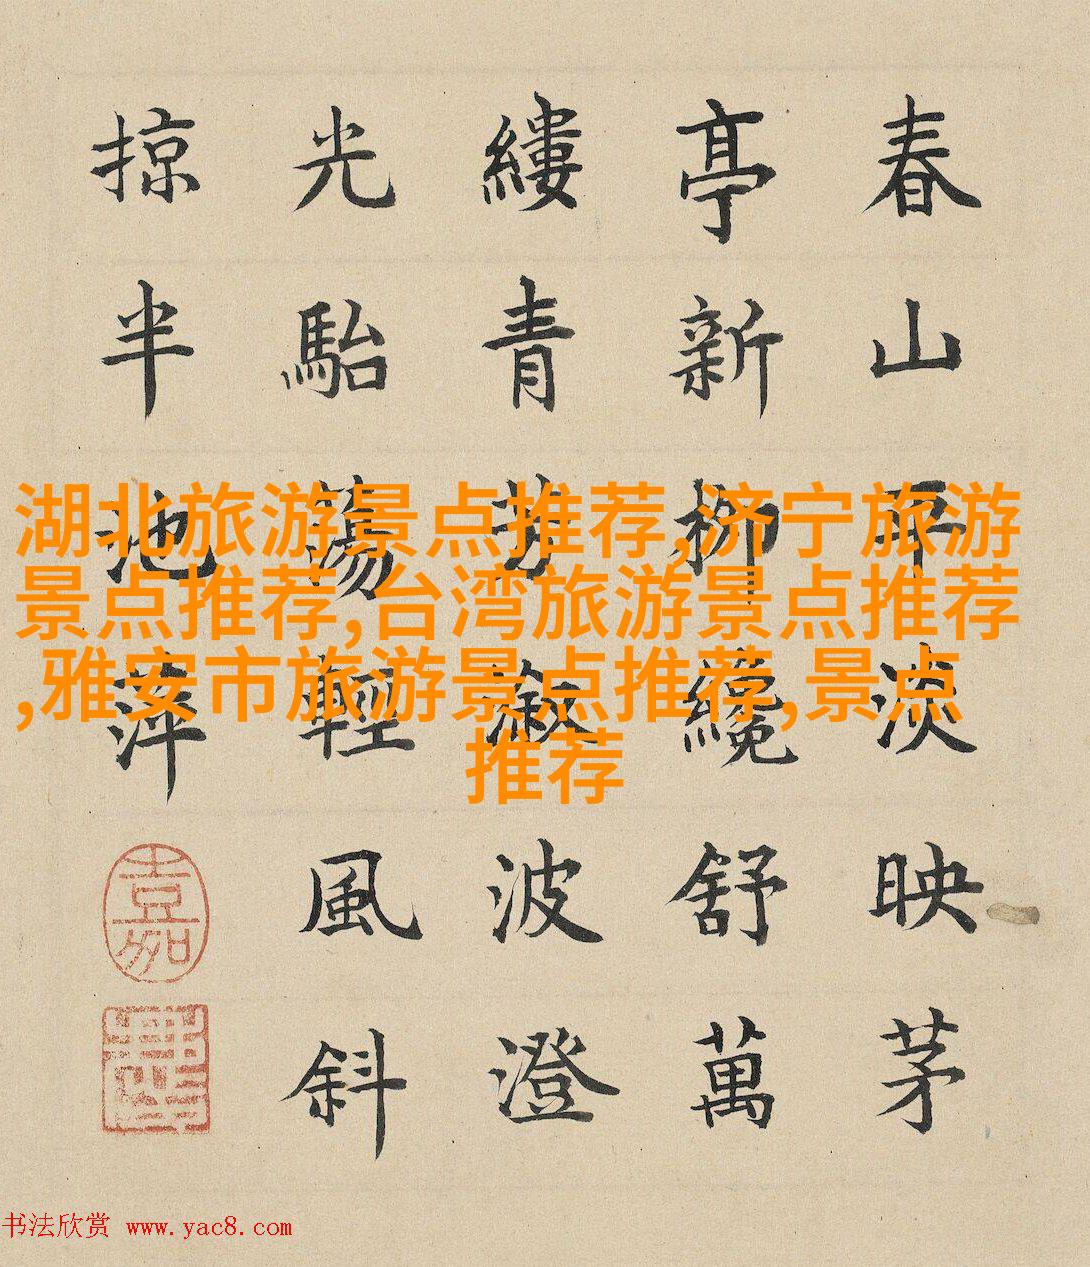 春山平淡映茅
亭新柳纔舒萬
縷青波澄
光駘蕩輕風斜
掠半池萍
嘉
湖北旅游景点推荐,济宁旅游
景点推荐,台湾旅游景点推荐
,雅安市旅游景点推荐,景点
推荐
书法欣赏 www.yac8.com